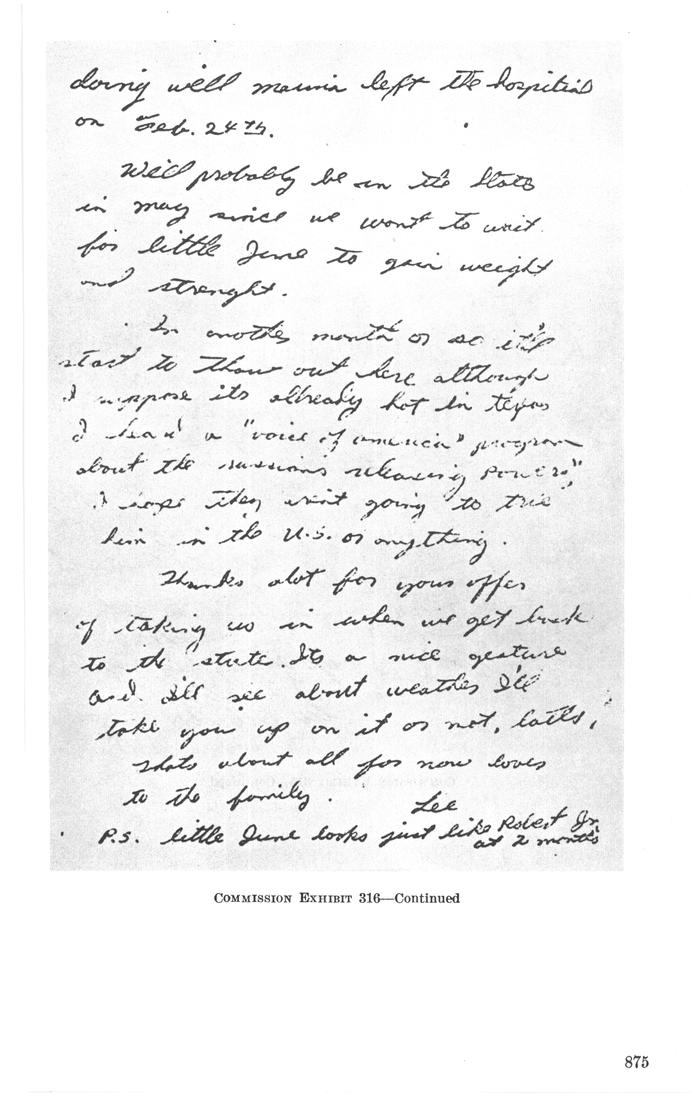 doing well marina left the hospitial
on Feb. 24th.
Well probably be in the State
in may since we want to wait
for little June to gain weight
and strenght.
In another month or so it'll
start to thaw out here although
I suppose its already hot in texas
I heard a "voice of america" program
about the russians releasing Powers,
I hope they arn't going to trie
him in the U.S. or anything.
Thanks alot for your offer
of taking us in when we get back
to the state. Its a nice gesture
and I'll see about weather I'll
take you up on it or not, latter,
thats about all for now loves
to the family. Lee
P.S. little June looks just like Robert Jr.
at 2 months
COMMISSION EXHIBIT 316—Continued
875